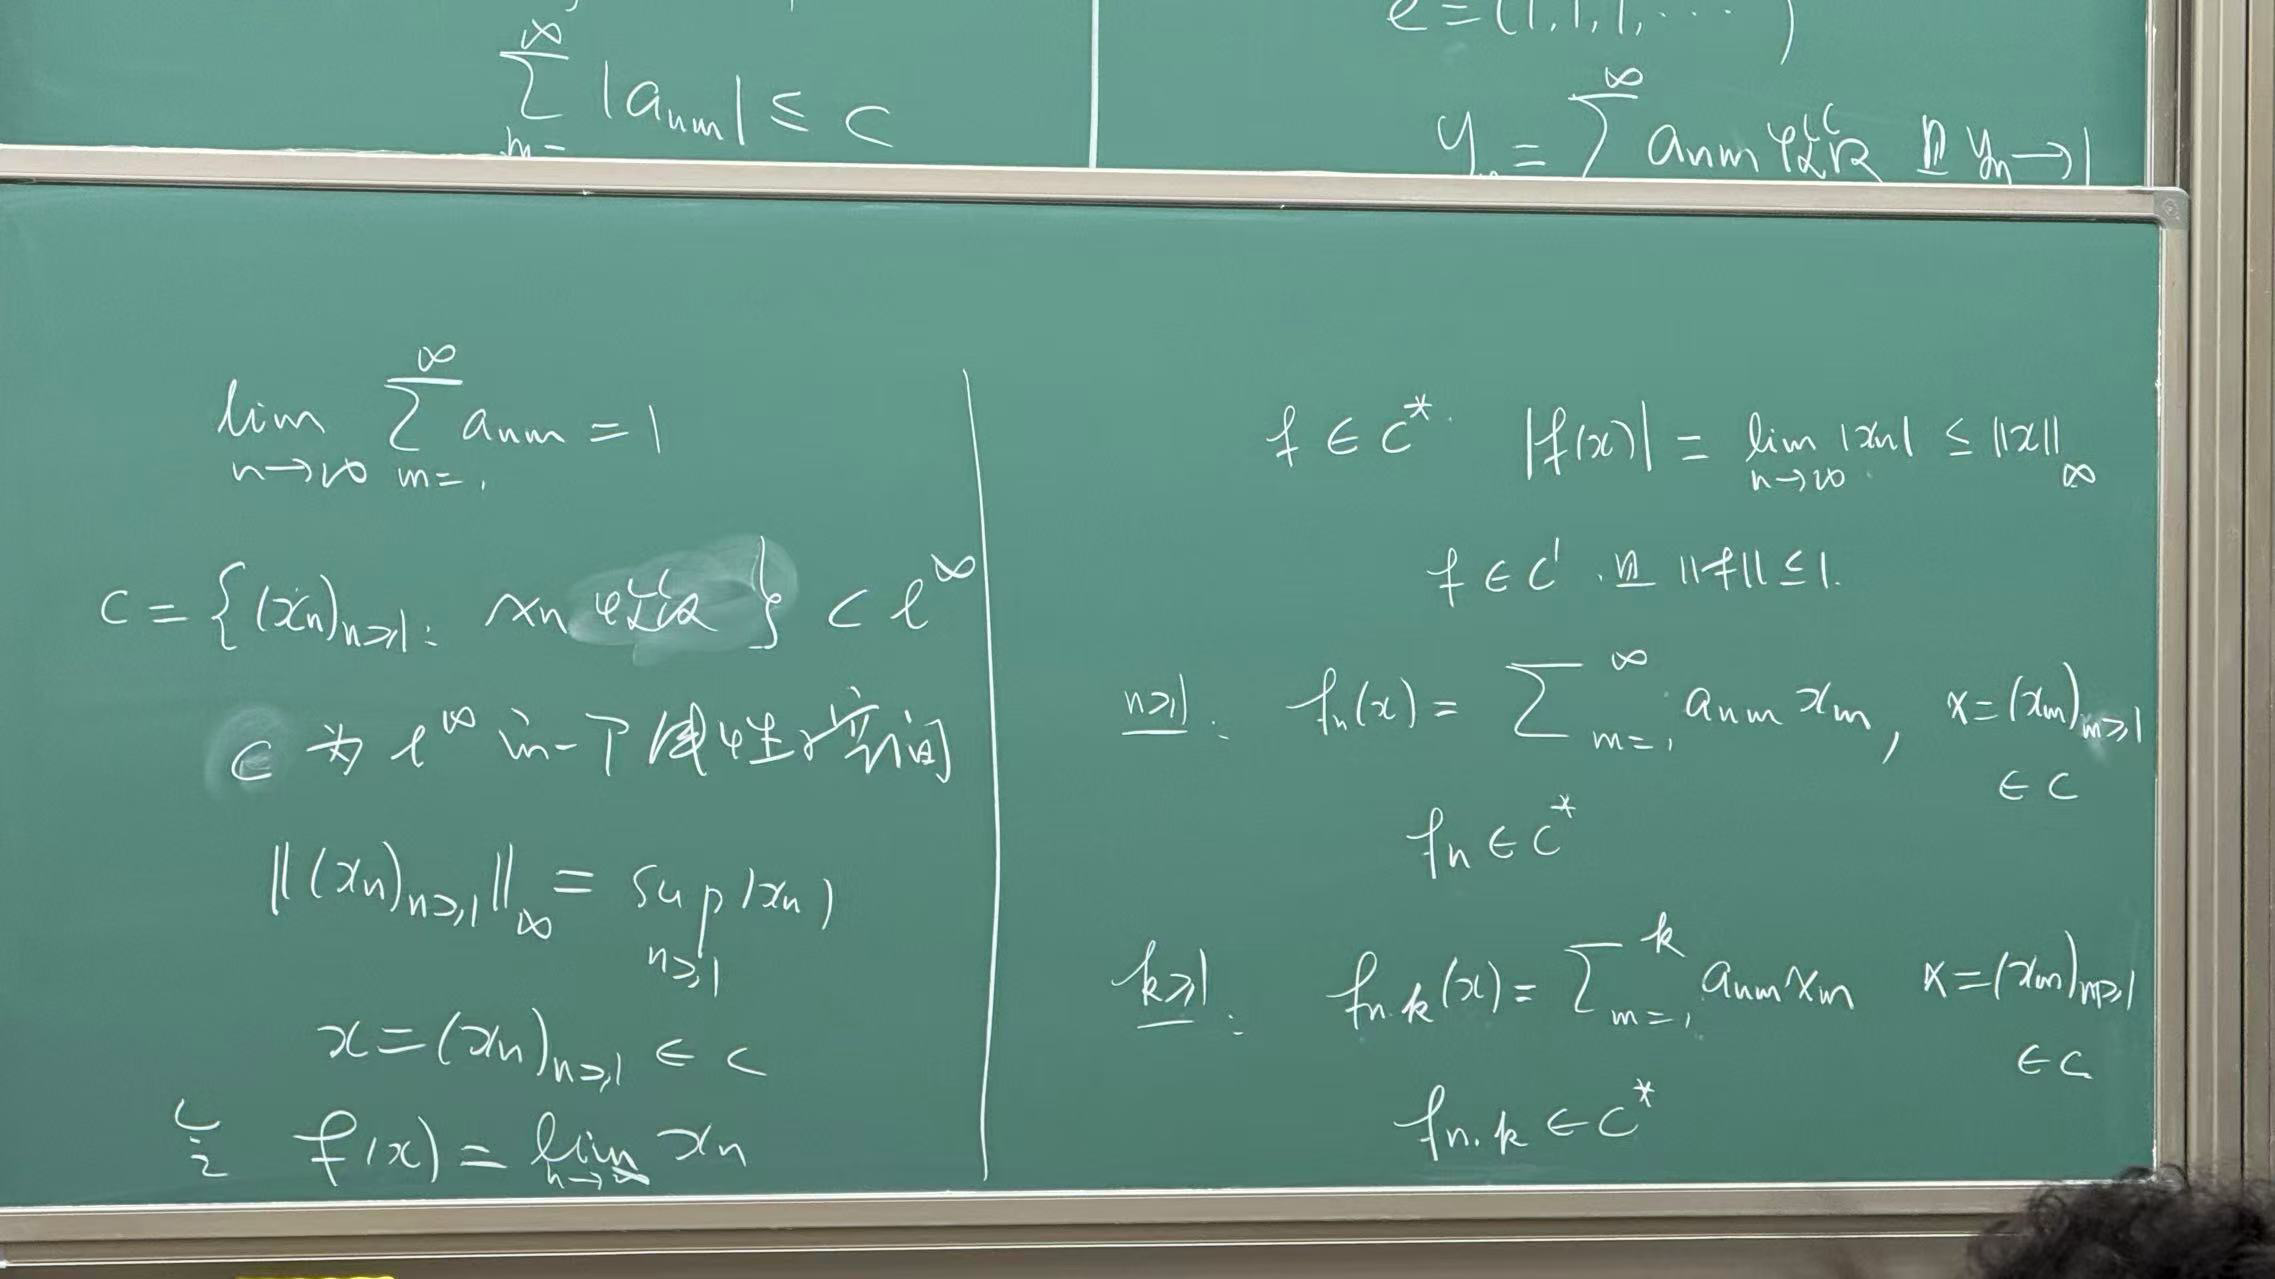 ∑_{m=}^∞ |a_{nm}| ≤ C
e = (1, 1, 1, ⋯)
y_n = ∑^∞ a_{nm} 收敛 且 y_n → 1
lim_{n→∞} ∑_{m=1}^∞ a_{nm} = 1
C = {(x_n)_{n≥1} : x_n 收敛} ⊂ ℓ^∞
C 为 ℓ^∞ 的一个闭线性子空间
‖(x_n)_{n≥1}‖_∞ = sup_{n≥1} |x_n|
x = (x_n)_{n≥1} ∈ C
记 f(x) = lim_{n→∞} x_n
f ∈ C^*. |f(x)| = lim_{n→∞} |x_n| ≤ ‖x‖_∞
f ∈ C' . 且 ‖f‖ ≤ 1.
n≥1: f_n(x) = ∑_{m=1}^∞ a_{nm} x_m, x = (x_m)_{m≥1}
∈ C
f_n ∈ C^*
k≥1: f_{n.k}(x) = ∑_{m=1}^k a_{nm} x_m x = (x_m)_{m≥1}
∈ C
f_{n.k} ∈ C^*